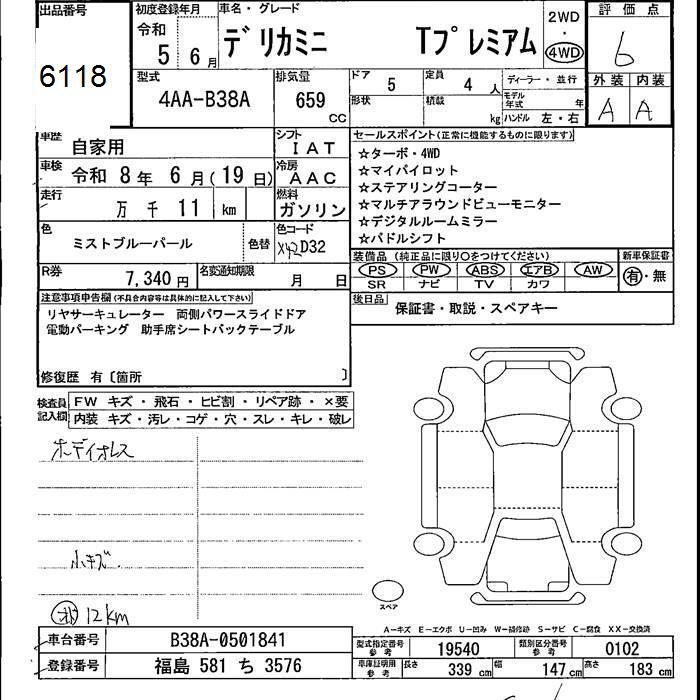 出品番号 初度登録年月 車名・グレード 2WD 評価点
6118 令和 5 6月 デリカミニ Tプレミアム 4WD 6
型式 排気量 ドア 5 定員 4人 ディーラー・並行 外装 内装
4AA-B38A 659 CC 形状 積載 kg モデル年式 年 ハンドル 左・右 A A
車歴 自家用 シフト IAT セールスポイント(正常に機能するものに限ります)
車検 令和 8年 6月(19日) 冷房 AAC ☆ターボ・4WD
☆マイパイロット
走行 万千11 km 燃料 ガソリン ☆ステアリングコーター
☆マルチアラウンドビューモニター
色 ミストブルーパール 色替 色コード D32 ☆デジタルルームミラー
☆パドルシフト
装備品 (純正品に限り○をつけてください) 新車保証書
R券 7,340円 名変通知期限 月 日 PS PW ABS エアB AW 有・無
SR ナビ TV カワ
注意事項申告欄(不具合内容等は具体的に記入して下さい) 後日品 保証書・取説・スペアキー
リヤサーキュレーター 両側パワースライドドア
電動パーキング 助手席シートバックテーブル
修復歴 有〔箇所 〕
検査員記入欄 FW キズ・飛石・ヒビ割・リペア跡・×要
内装 キズ・汚レ・コゲ・穴・スレ・キレ・破レ
ボディオレス
小キズ
12km
スペア
A-キズ E-エクボ U-凹み W-補修跡 S-サビ C-腐食 XX-交換済
車台番号 B38A-0501841 型式指定番号 参考 19540 類別区分番号 参考 0102
登録番号 福島 581 ち 3576 車庫証明用 参考 長さ 339 cm 幅 147 cm 高さ 183 cm